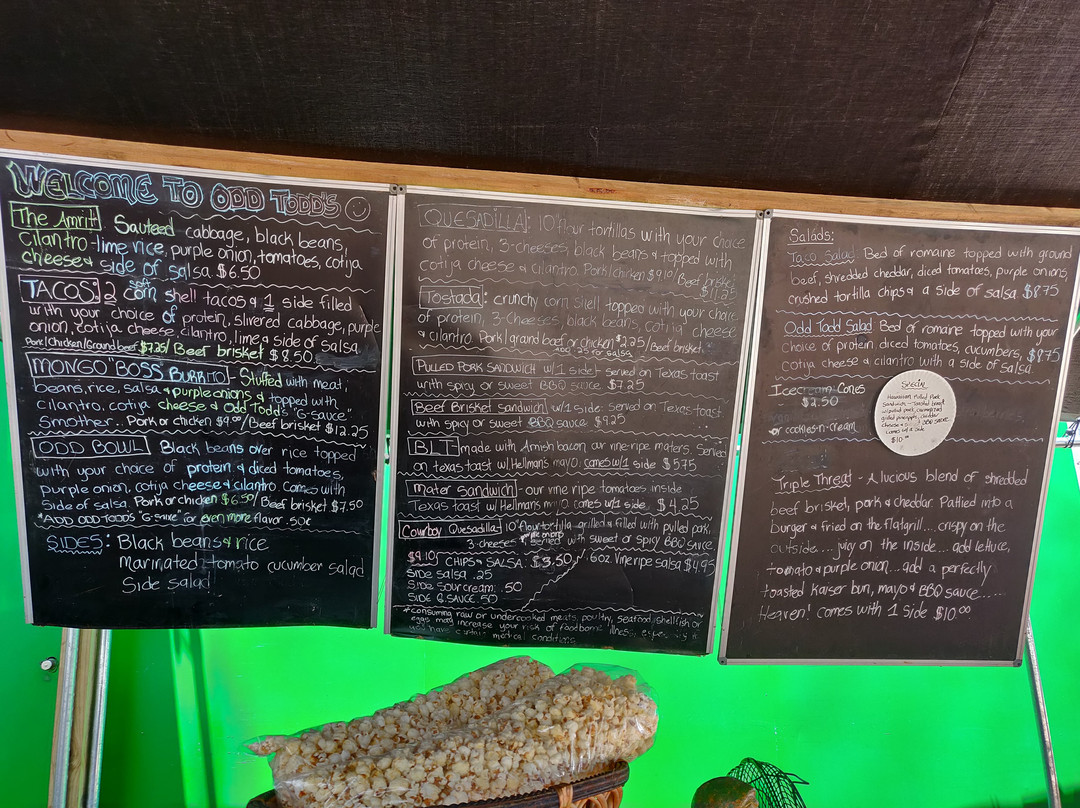 WELCOME TO ODD TODD'S
The Amrit Sauteed cabbage, black beans,
Cilantro-lime rice, purple onion, tomatoes, cotija
cheese & side of salsa $6.50
TACOS: 2 soft corn shell tacos & 1 side filled
with your choice of protein, slivered cabbage, purple
onion, cotija cheese, cilantro, lime & side of salsa
Pork/Chicken/Ground beef $7.25/ Beef brisket $8.50
MONGO "BOSS" BURRITO - Stuffed with meat,
beans, rice, salsa & purple onions & topped with
Cilantro, cotija cheese & Odd Todd's "G-sauce"
Smother... Pork or chicken $9.00/Beef brisket $12.25
ODD BOWL Black beans over rice topped
with your choice of protein & diced tomatoes,
purple onion, cotija cheese & cilantro. Comes with
Side of salsa. Pork or chicken $6.50/ Beef brisket $7.50
*ADD ODD TODD'S "G-Sauce" for even more flavor .50¢
SIDES: Black beans & rice
Marinated tomato cucumber salad
Side salad
QUESADILLA: 10" flour tortillas with your choice
of protein, 3-cheeses, black beans & topped with
cotija cheese & cilantro. Pork/chicken $9.10/Beef brisket
$11.25
Tostada: crunchy corn shell topped with your choice
of protein, 3-cheeses, black beans, cotija cheese
& cilantro. Pork/ground beef or chicken /Beef brisket
ADD .25 for salsa
PULLED PORK SANDWICH w/1 side: served on Texas toast
with spicy or sweet BBQ sauce $7.25
Beef Brisket Sandwich w/1 side: served on Texas toast
with spicy or sweet BBQ sauce $9.25
BLT made with Amish bacon our vine-ripe maters, served
on texas toast w/ Hellman's mayo. comes w/1 side $5.75
Mater Sandwich - our vine ripe tomatoes inside
Texas toast w/ Hellman's mayo. comes w/1 side. $4.25
Cowboy Quesadilla 10" flour tortilla grilled & filled with pulled pork,
3-cheeses purple onions with sweet or spicy BBQ sauce
$9.10 CHIPS & SALSA. $3.50 6oz. Vine ripe salsa $4.95
SIDE SALSA .25
SIDE SOUR CREAM .50
SIDE G. SAUCE .50
*consuming raw or undercooked meats, poultry, seafood, shellfish or
eggs may increase your risk of foodborne illness, if
you have certain medical conditions
Salads:
Taco Salad Bed of romaine topped with ground
beef, shredded cheddar, diced tomatoes, purple onions,
crushed tortilla chips & a side of salsa. $8.75
Odd Todd Salad Bed of romaine topped with your
choice of protein diced tomatoes, cucumbers, $8.75
cotija cheese & cilantro with a side of salsa.
Icecream Cones
$2.50
or cookies-n-cream
SPECIAL
Hawaiian Pulled Pork
Sandwich - toasted bread
w/pulled pork, caramelized
grilled pineapple, cheddar
cheese & BBQ sauce
comes w/ a side
$10.00
Triple Threat - A lucious blend of shredded
beef brisket, pork & cheddar. Pattied into a
burger & fried on the flatgrill... crispy on the
outside... juicy on the inside... add lettuce,
tomato & purple onion... add a perfectly
toasted Kaiser bun, mayo & BBQ sauce.....
Heaven! comes with 1 side $10.00